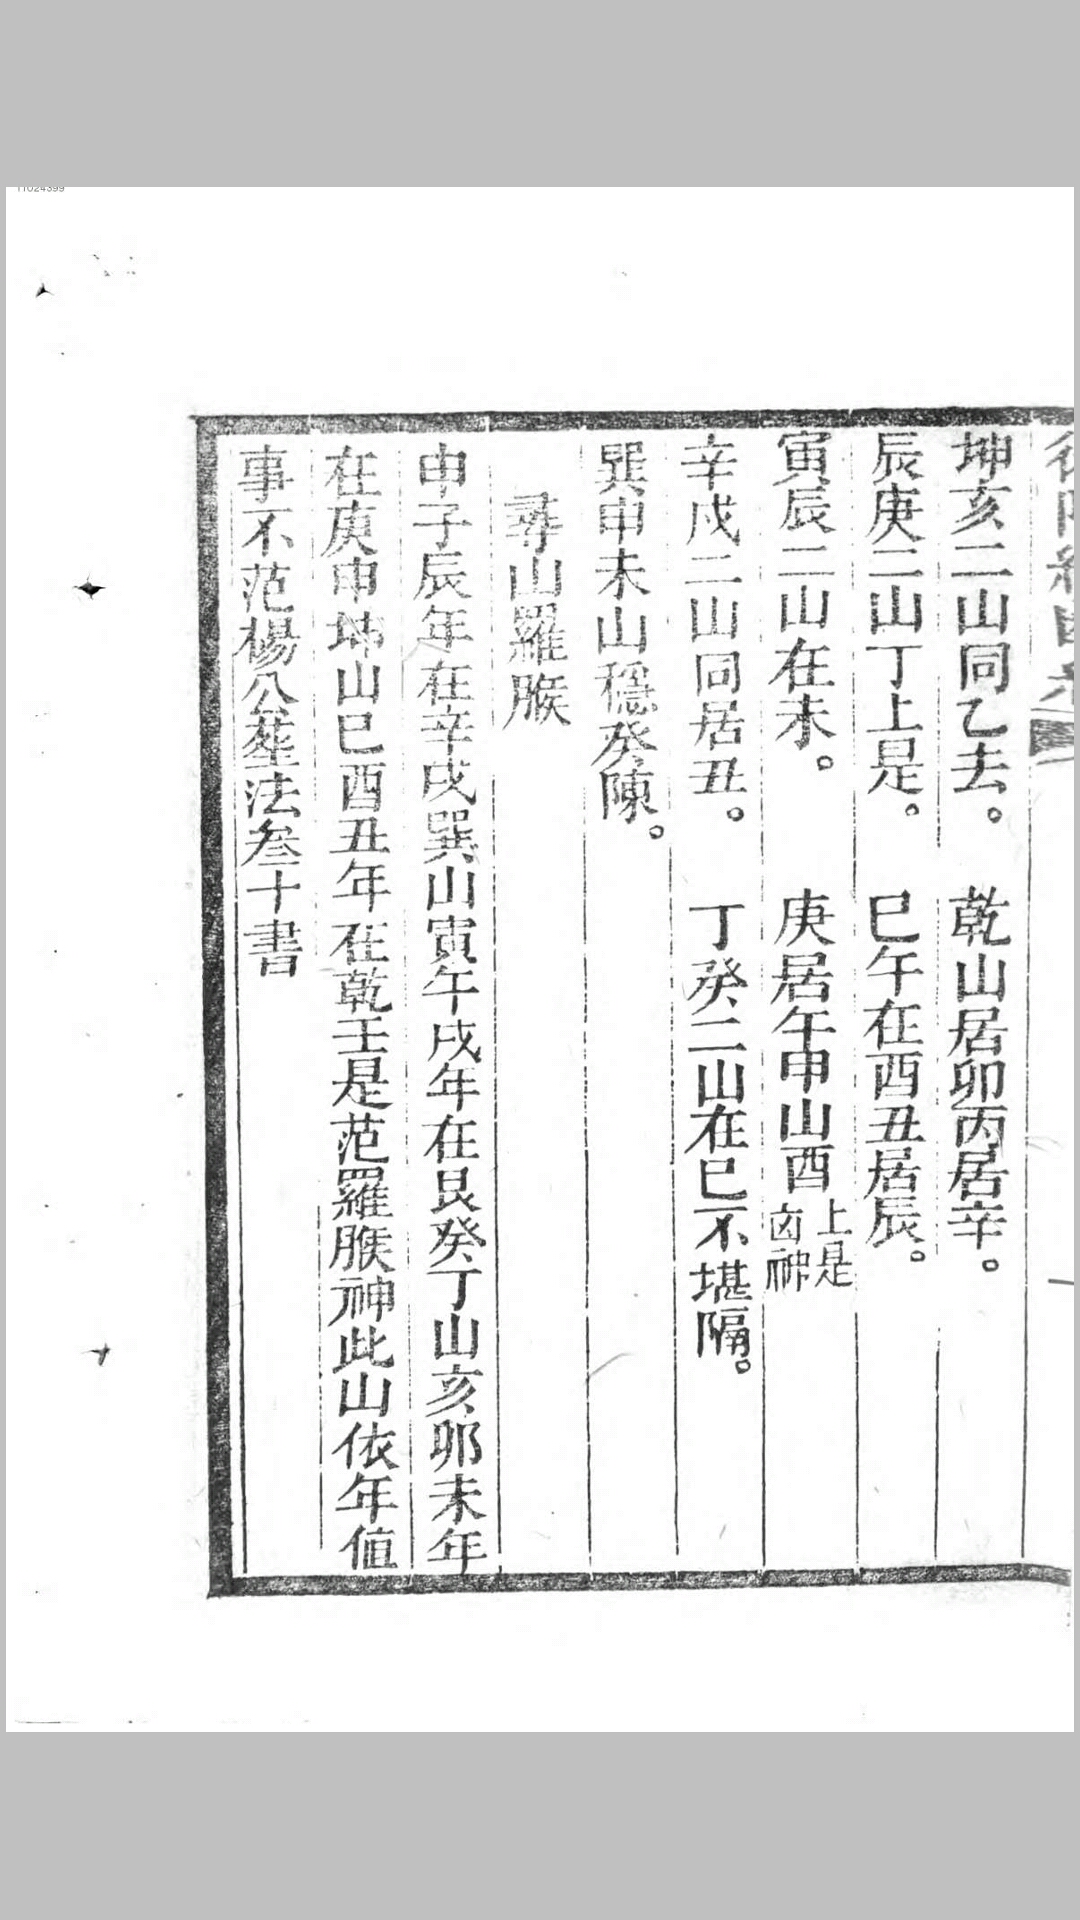 11024399
坤亥二山同乙去。 乾山居卯丙居辛。
辰庚二山丁上是。 巳午在酉丑居辰。
寅辰二山在未。 庚居午申山酉上是凶神
辛戌二山同居丑。 丁癸二山在巳不堪隔。
巽申未山穩癸陳。
尋山羅睺
申子辰年在辛戌巽山寅午戌年在艮癸丁山亥卯未年
在庚申坤山巳酉丑年在乾壬是范羅睺神此山依年值
事不范楊公塟法叁十書